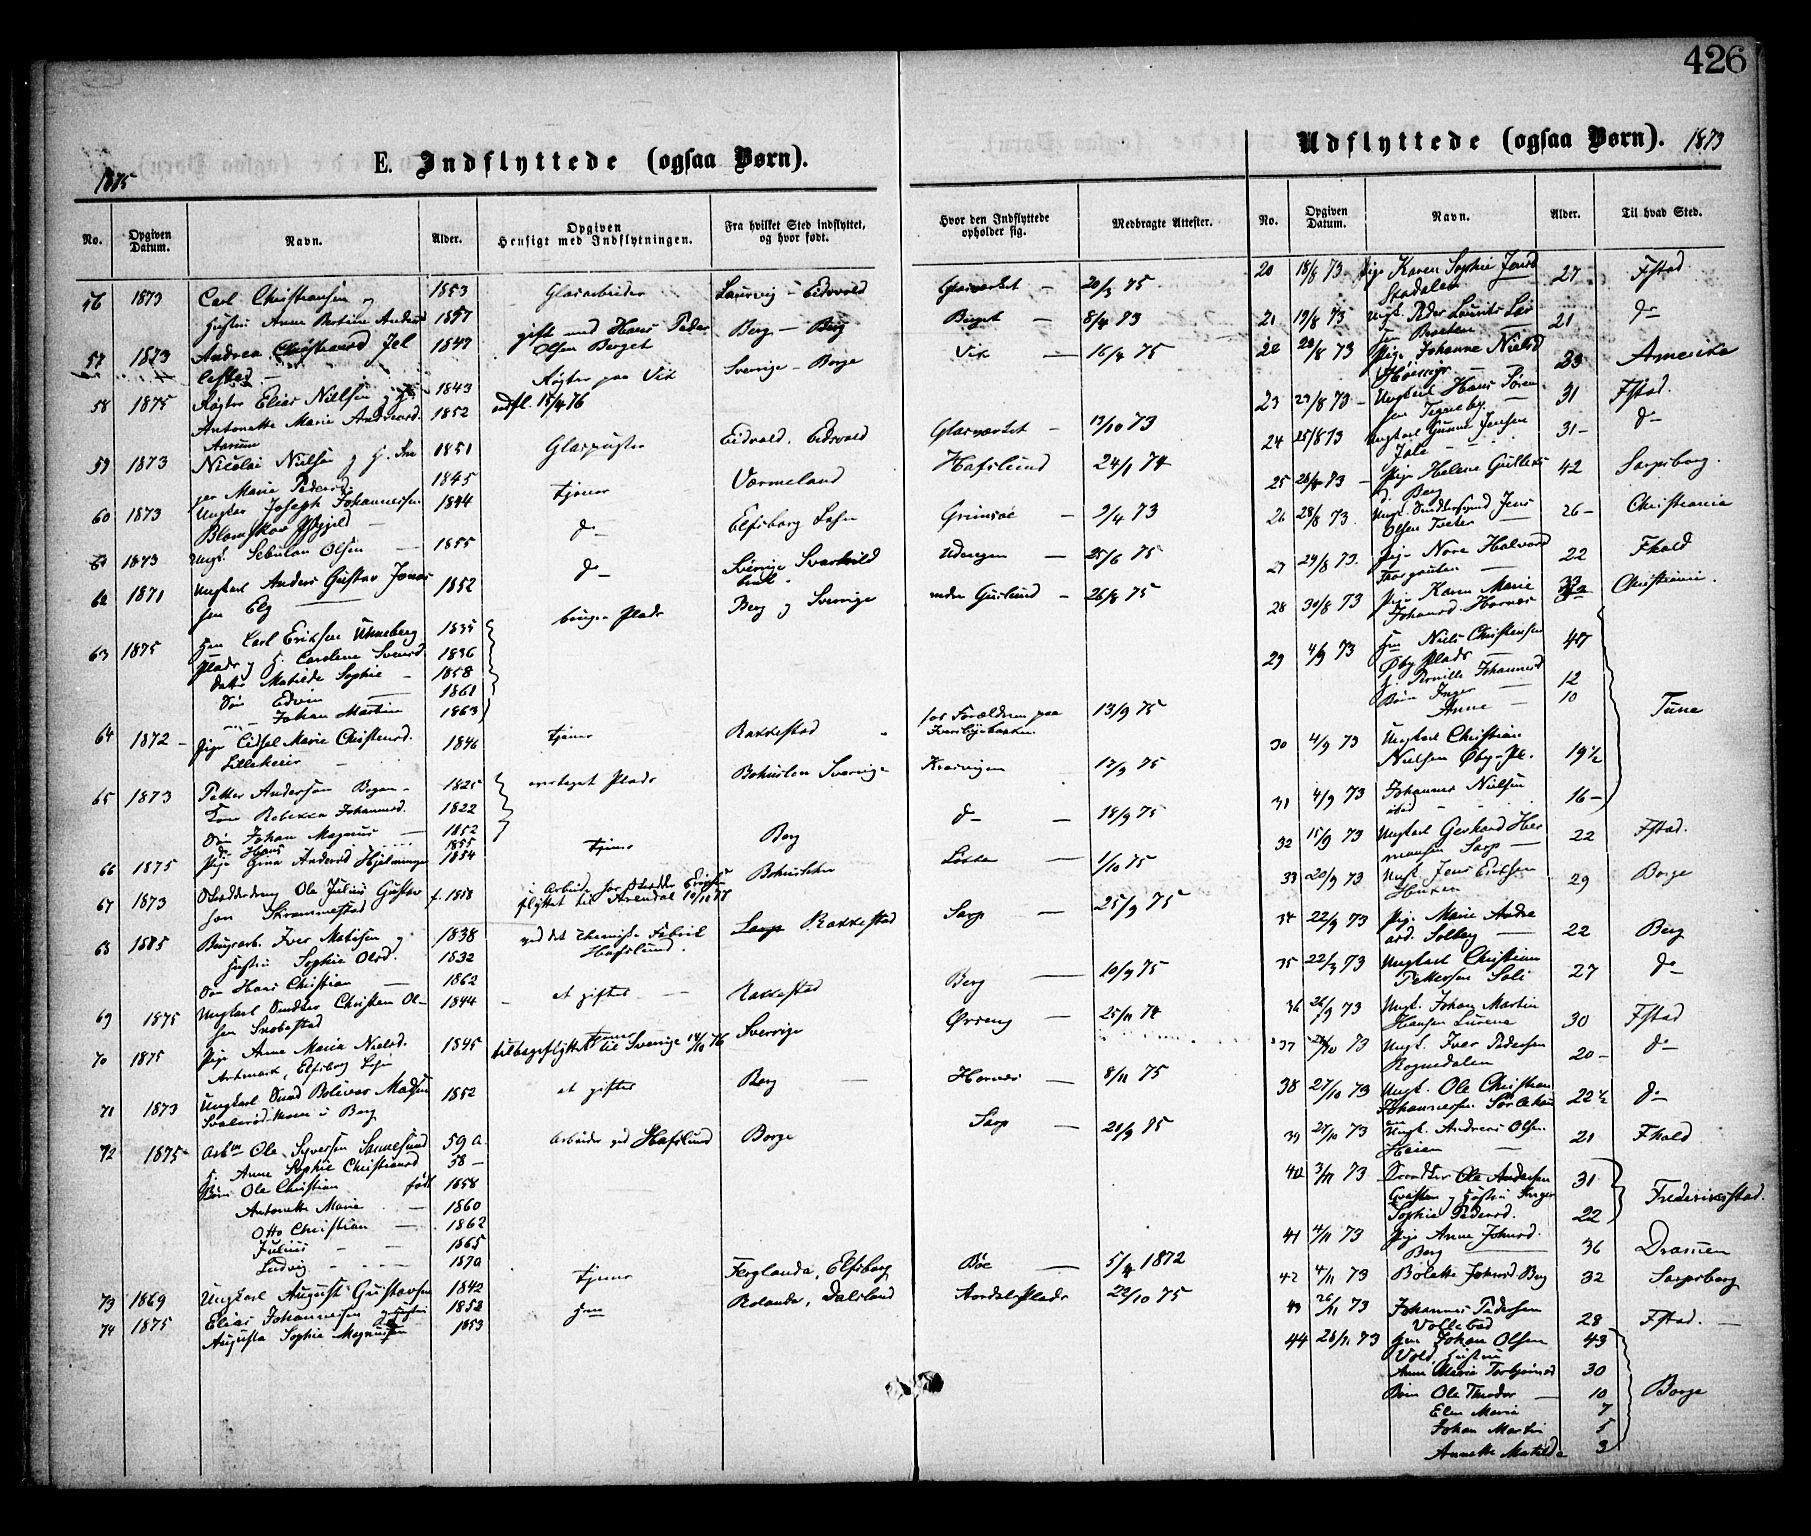 426
E. Indflyttede (ogsaa Børn).
1875
No.
Opgiven Datum.
Navn.
Alder.
Opgiven Hensigt med Indflytningen.
Fra hvilket Sted indflyttet, og hvor født.
Hvor den Indflyttede opholder sig.
Medbragte Attester.
56 1873 Carl Christiansen og 1853 Glasarbeider Laurvig - Eidsvold Glasværket - 20/3 75
Hustru Anne Bertine Anders 1857
57 1873 Andrea Christiansd 1847 gift med Hans Peder Berg - Berg Berget - 8/4 73
Olsen Berget
58 1875 Røgter Elias Nielsen og 1843 Røgter paa Vik Sverrige - Borge Vik - 16/4 75
Antonette Marie Andreasd. 1852 udfl. 18/4 76
59 1873 Nicolai Nielsen og H. In 1851 Glaspuster Eidvold. Eidsvold Glasværket - 13/10 73
ger Marie Pedersd. 1845
60 1873 Ungkar Joseph Johannessen 1844 tjener Værmeland Hafslund 24/1 74
61 1873 Ungk. Sebulon Olsen 1855 do Elfsborg Lehn Grimsøe - 2/4 73
62 1871 Ungkarl Anders Gustav Jonas 1852 do Sverrige Udengen - 25/6 75
sen Elg
63 1875 Carl Eriksen Unneberg 1835 bruger Plads Berg og Sverrige nedre Guslund - 26/8 75
Plads og H. Caroline Svensd 1836
Datt. Matilde Sophie - 1858
Søn Edvin 1861
Johan Martin 1863
64 1872 - Pige Cidsel Marie Christensd. 1846 tjener Rakkestad hos Forældrene paa 13/9 75
65 1873 Petter Andersen 1825 overtaget Plads Bohuslen Sverrige 17/9 75
Kone Rebekka Johannesd. 1822
Søn Johan Magnus 1852
do Hans 1855
66 1875 Pige Gina Andersd 1854 tjener Berg do - 18/9 75
67 1873 Ole Julius Gustav f. 1858 i Arbeide for Bohuslehn - 1/10 75
sen Skrammestad flyttet til Arendal 10/10 77
68 1875 Brugsarb. Iver Matisen og 1838 ved det chemiske Fabrik Rakkestad Sarp - 25/9 75
Hustru Sophie Olsd. 1832 Hafslund.
Søn Hans Christian 1862
69 1875 Ungkarl Christen Ol- 1844 - at giftes Rakkestad Berg 10/9 75
sen
70 1875 Pige Anne Maria Nielsd. 1845 tjener Sverrige Ørseng - 25/11 74
Artemark, Elfsborg Lehn tilbageflyttet til Sverige 14/10 76
71 1873 Ungkarl Bolivar Madsen 1852 at giftes Berg Hornæs - 8/11 75
72 1875 Arbm. Ole Syversen 59 A. Arbeider ved Hafslund Borge Sarp - 21/9 75
H. Anne Sophie Christiansd 58 -
Børn Ole Christian født 1858
Antonette Marie - 1860
Otto Christian - 1862
Julius - 1865
Ludvig - 1870
73 1869 Ungkarl August Gustavsen 1842 tjener Ferglanda, Elfsborg Bøe - 5/4 1872
74 1875 Elias Johannesen og Hustru 1852 Rolanda, Dalsland Aardal Plads 22/10 75
Augusta Sophie Magnusen 1853
Udflyttede (ogsaa Børn). 1873
No.
Opgiven Datum.
Navn.
Alder.
Til hvad Sted.
20 18/8 73 Pige Karen Sophie Jensd 27 Fstad
21 19/8 73 Ungk. Peder Lauritz Lar 21 do
sen Braaten
22 20/8 73 Pige Johanne Nielsd 23 Amerika
23 23/8 73 - Ungkarl Hans Søren 31 Fstad.
sen Tegneby -
24 25/8 73 Ungkarl Gunnar Jensen 31 - do
25 28/8 73 - Pige Helene Gullens 42 Sarpsborg.
d. Berg
26 28/8 73. Ungk. Jens 26 - Christiania
Olsen Tveter
27 29/8 73. Pige Nore Halvord 22 Fhald
28 30/8 73 Pige Karen Marie 33 Christiania.
Johansd. Hornæs
29 4/9 73 Niels Christensen 47
Øby Plads
H. Pernille Johannesd
Børn Inger 12
Anne - 10
Tune
30 4/9 73 Ungkarl Christian
Nielsen Øby-Pl. 19 1/2
31 4/9 73 Johannes Nielsen 16 -
32 15/9 73 Ungkarl Gerhard Her 22 Fstad.
mansen Sarp -
33 20/9 73 Ungk. Jens Eriksen 29 Borge
34 22/9 73 Pige Marie Andre 22 Berg
asd. Solberg
35 22/9 73 Ungkarl Christian 27 do
Pettersen Soli
36 26/9 73 Ungk. Johan Martin 30 Fstad
Hansen
37 /10 73 Ungk. Iver Pedersen 20 - do
Rognedalen
38 27/10 73 Ungk. Ole Christian 22 1/2 do
Johannessen
39 27/10 73 Ungk. Andreas Olsen 21 Fhald
Heien
40 3/11 73 Ole Andersen 31
og Hustru Inger
Sophie Pedersd. 22
Frederiksstad.
41 4/11 73 Pige Anne Johnsd. 36 Dramen
Berg
42 4/11 73 Bolette Johnsd Berg 32 Sarpsborg
43 26/11 73 Johannes Pedersen 28 Fstad. -
44 28/11 73 Johan Olsen 43
Vold Hustru
Anne Marie Torbjørnsd 30
Børn Ole Theodor - 10 Borge
Elen Marie 7
Johan Martin 5
Annette Matilde 3